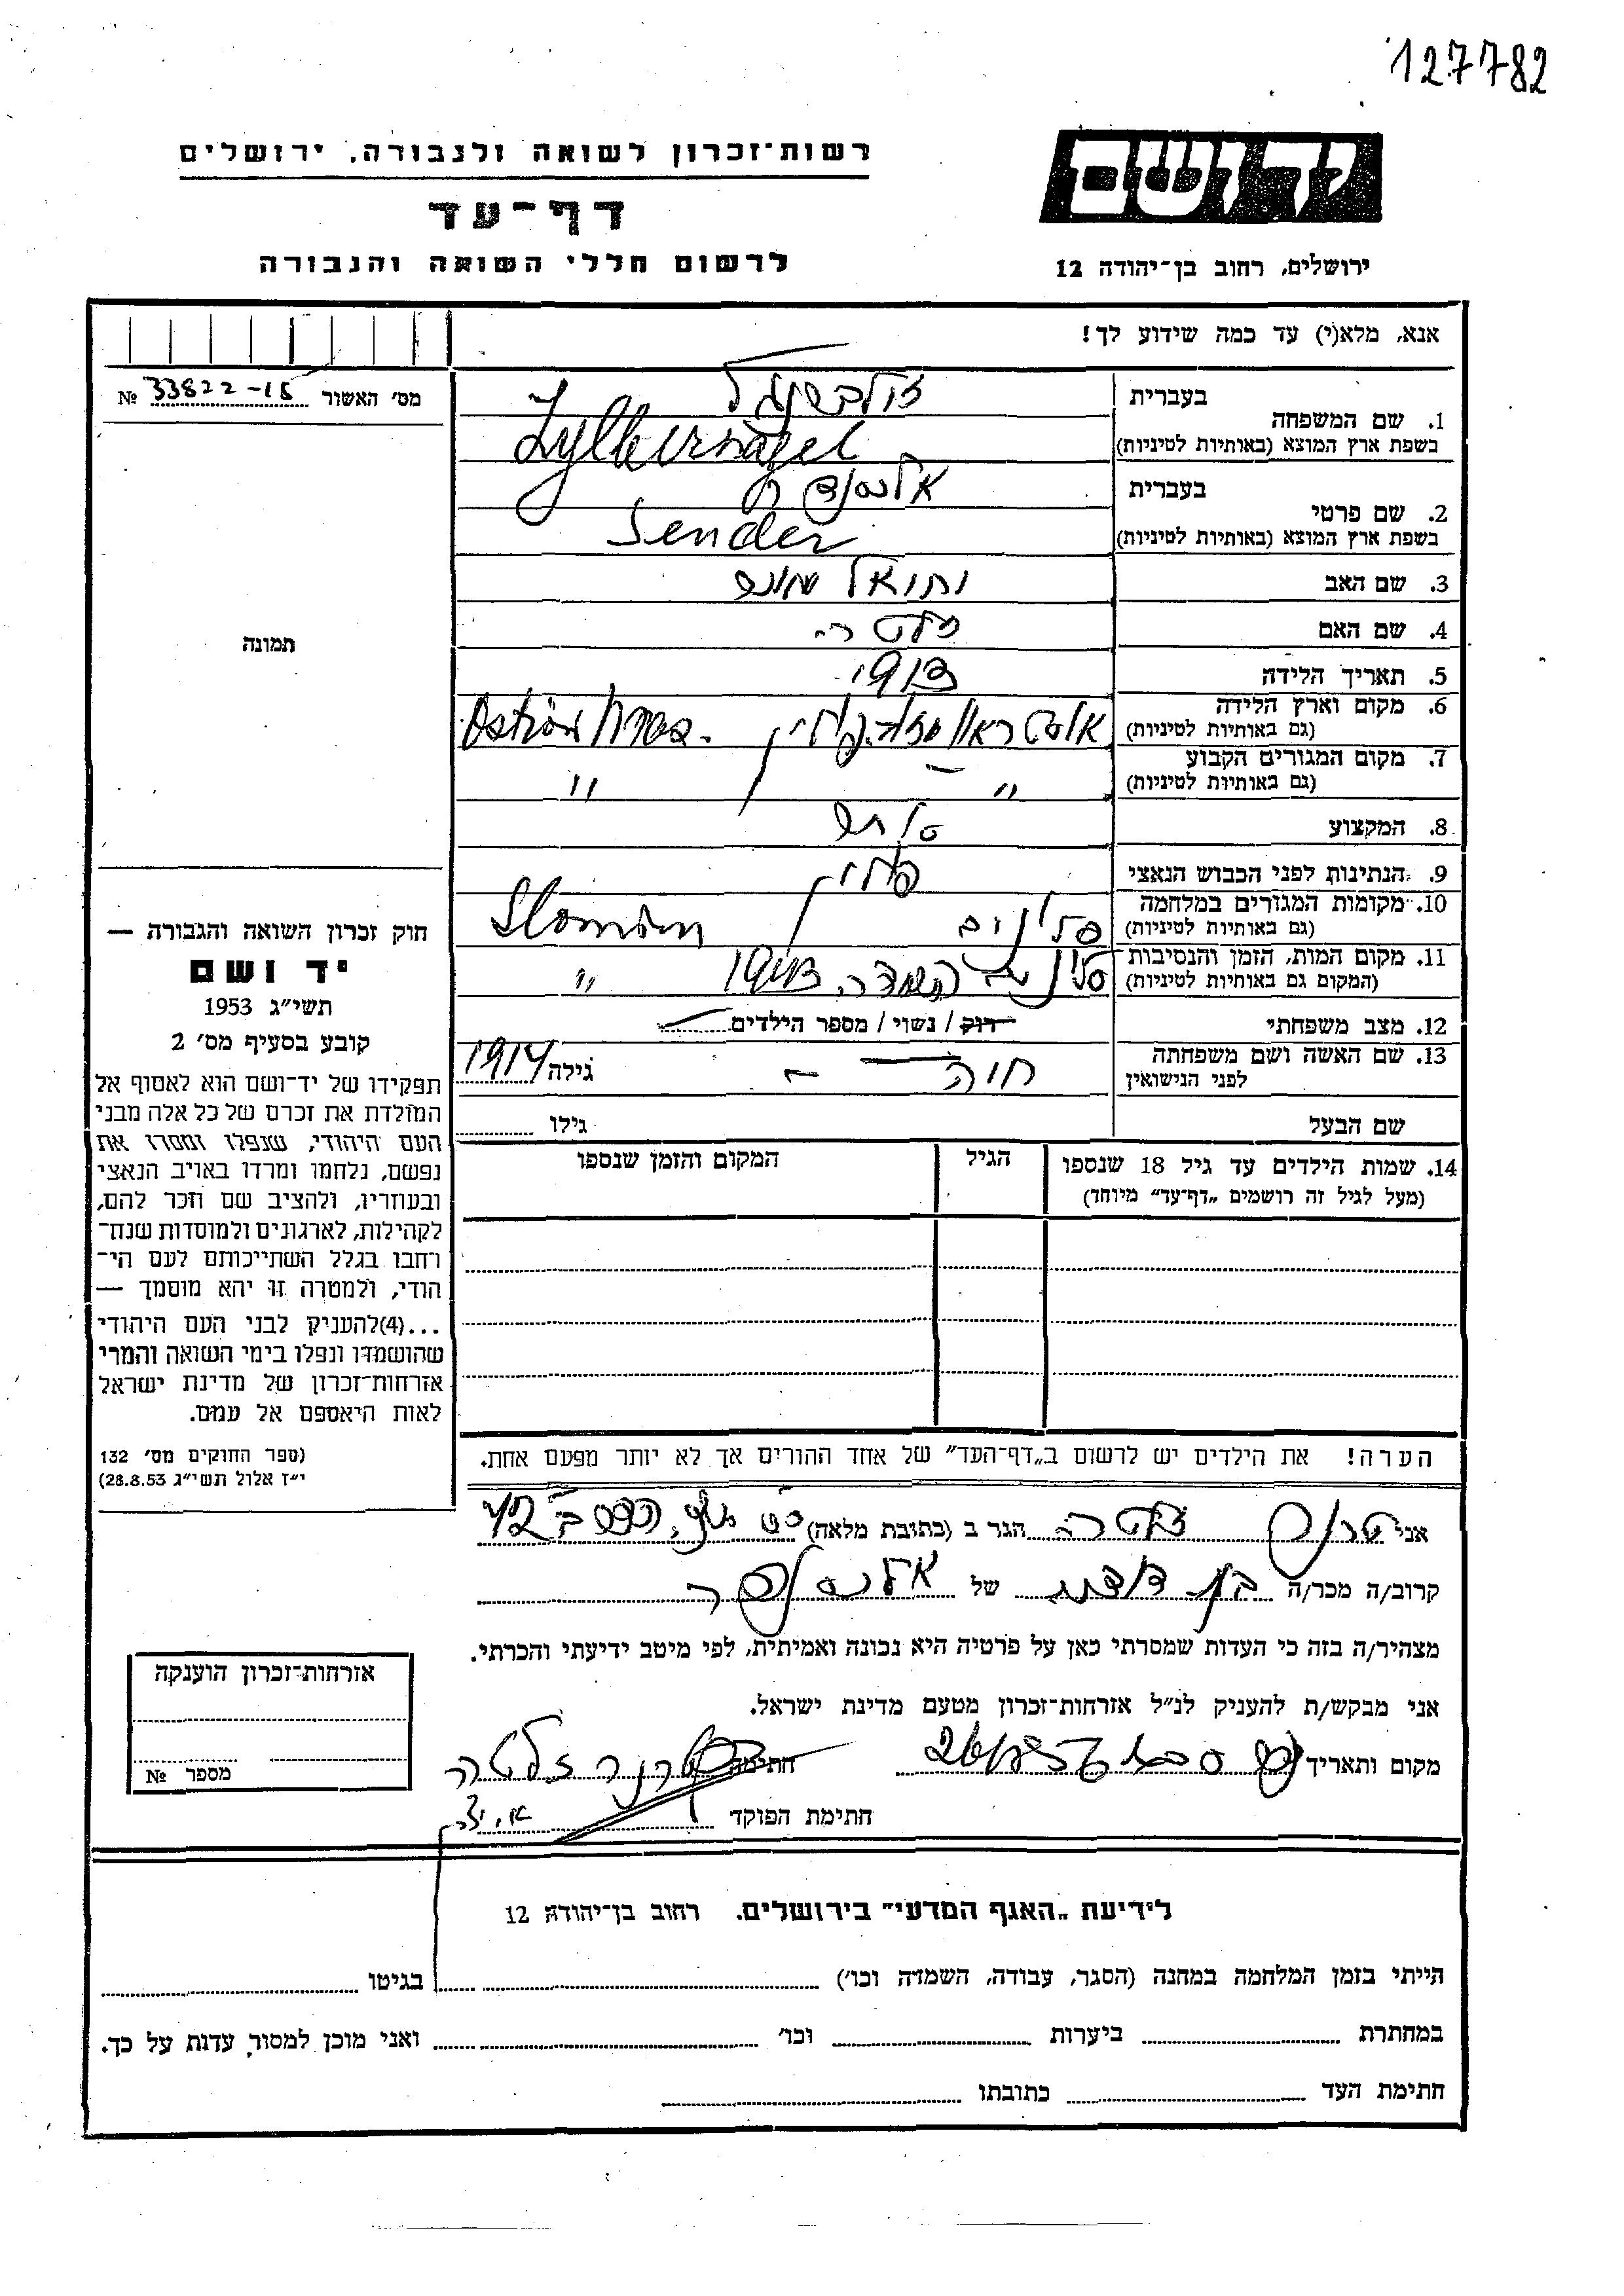 127782
ידושם
רשות־זכרון לשואה ולגבורה, ירושלים
דף־עד
לרשום חללי השואה והגבורה
ירושלים, רחוב בן־יהודה 12
אנא, מלא(י) עד כמה שידוע לך!
מס' האשור 33822-18 №
תמונה
1. שם המשפחה בעברית
בשפת ארץ המוצא (באותיות לטיניות) Zylbernagel
2. שם פרטי בעברית
בשפת ארץ המוצא (באותיות לטיניות) Sender
3. שם האב
4. שם האם
5. תאריך הלידה 1913
6. מקום וארץ הלידה
(גם באותיות לטיניות)
7. מקום המגורים הקבוע
(גם באותיות לטיניות) " "
8. המקצוע
9. הנתינות לפני הכבוש הנאצי פולין
10. מקומות המגורים במלחמה
(גם באותיות לטיניות) סלונים
11. מקום המות, הזמן והנסיבות
(המקום גם באותיות לטיניות) השמדה "
12. מצב משפחתי רוק / נשוי / מספר הילדים
13. שם האשה ושם משפחתה
לפני הנישואין חוה - גילה 1914
שם הבעל גילו
14. שמות הילדים עד גיל 18 שנספו הגיל המקום והזמן שנספו
(מעל לגיל זה רושמים „דף־עד" מיוחד)
הערה! את הילדים יש לרשום ב„דף־העד" של אחד ההורים אך לא יותר מפעם אחת.
חוק זכרון השואה והגבורה —
יד ושם
תשי״ג 1953
קובע בסעיף מס' 2
תפקידו של יד־ושם הוא לאסוף אל
המולדת את זכרם של כל אלה מבני
העם היהודי, שנפלו ומסרו את
נפשם, נלחמו ומרדו באויב הנאצי
ובעוזריו, ולהציב שם וזכר להם,
לקהילות, לארגונים ולמוסדות שנח־
רחבו בגלל השתייכותם לעם הי־
הודי, ולמטרה זו יהא מוסמך —
...(4)להעניק לבני העם היהודי
שהושמדו ונפלו בימי השואה והמרי
אזרחות־זכרון של מדינת ישראל
לאות היאספם אל עמם.
(ספר החוקים מס' 132
י״ז אלול תשי״ג 28.8.53)
אני זלטה הגר ב (כתובת מלאה)
קרוב/ה מכר/ה בת דודת של אלכסנדר
מצהיר/ה בזה כי העדות שמסרתי כאן על פרטיה היא נכונה ואמיתית, לפי מיטב ידיעתי והכרתי.
אני מבקש/ת להעניק לנ״ל אזרחות־זכרון מטעם מדינת ישראל.
מקום ותאריך חתימה זלטה
חתימת הפוקד
אזרחות־זכרון הוענקה
מספר №
לידיעת „האגף המדעי" בירושלים. רחוב בן־יהודה 12
הייתי בזמן המלחמה במחנה (הסגר, עבודה, השמדה וכו') בגיטו
במחתרת ביערות וכו' ואני מוכן למסור עדות על כך.
חתימת העד כתובתו